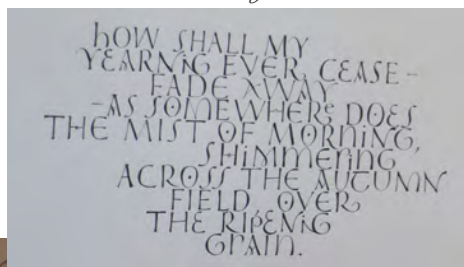 HOW SHALL MY
YEARNING EVER CEASE –
FADE AWAY
– AS SOMEWHERE DOES
THE MIST OF MORNING,
SHIMMERING
ACROSS THE AUTUMN
FIELD OVER
THE RIPENING
GRAIN.